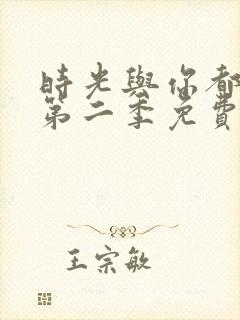 時光與你都
第二季免費
王宗敏